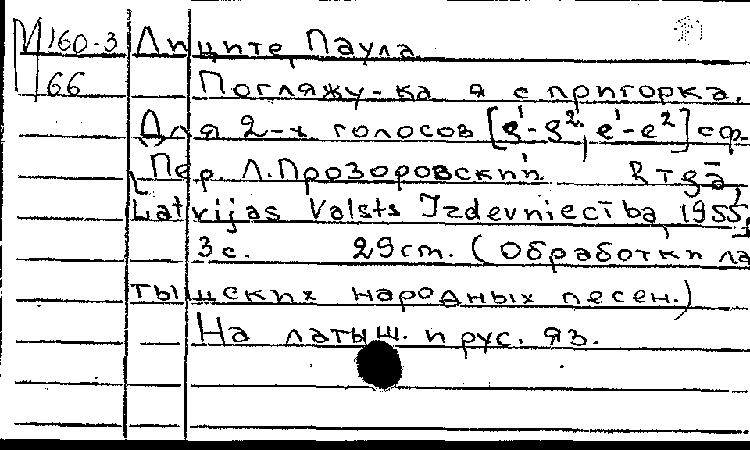 М160-3 Лиците, Паула
66 Погляжу-ка я с пригорка.
Для 2-х голосов [g¹-g², e¹-e²] с ф-
Пер. Л. Прозоровский. Rīgā,
Latvijas Valsts Izdevniecība, 1955,
3 с. 29 cm. (Обработки ла
тышских народных песен.)
На латыш. и рус. яз.